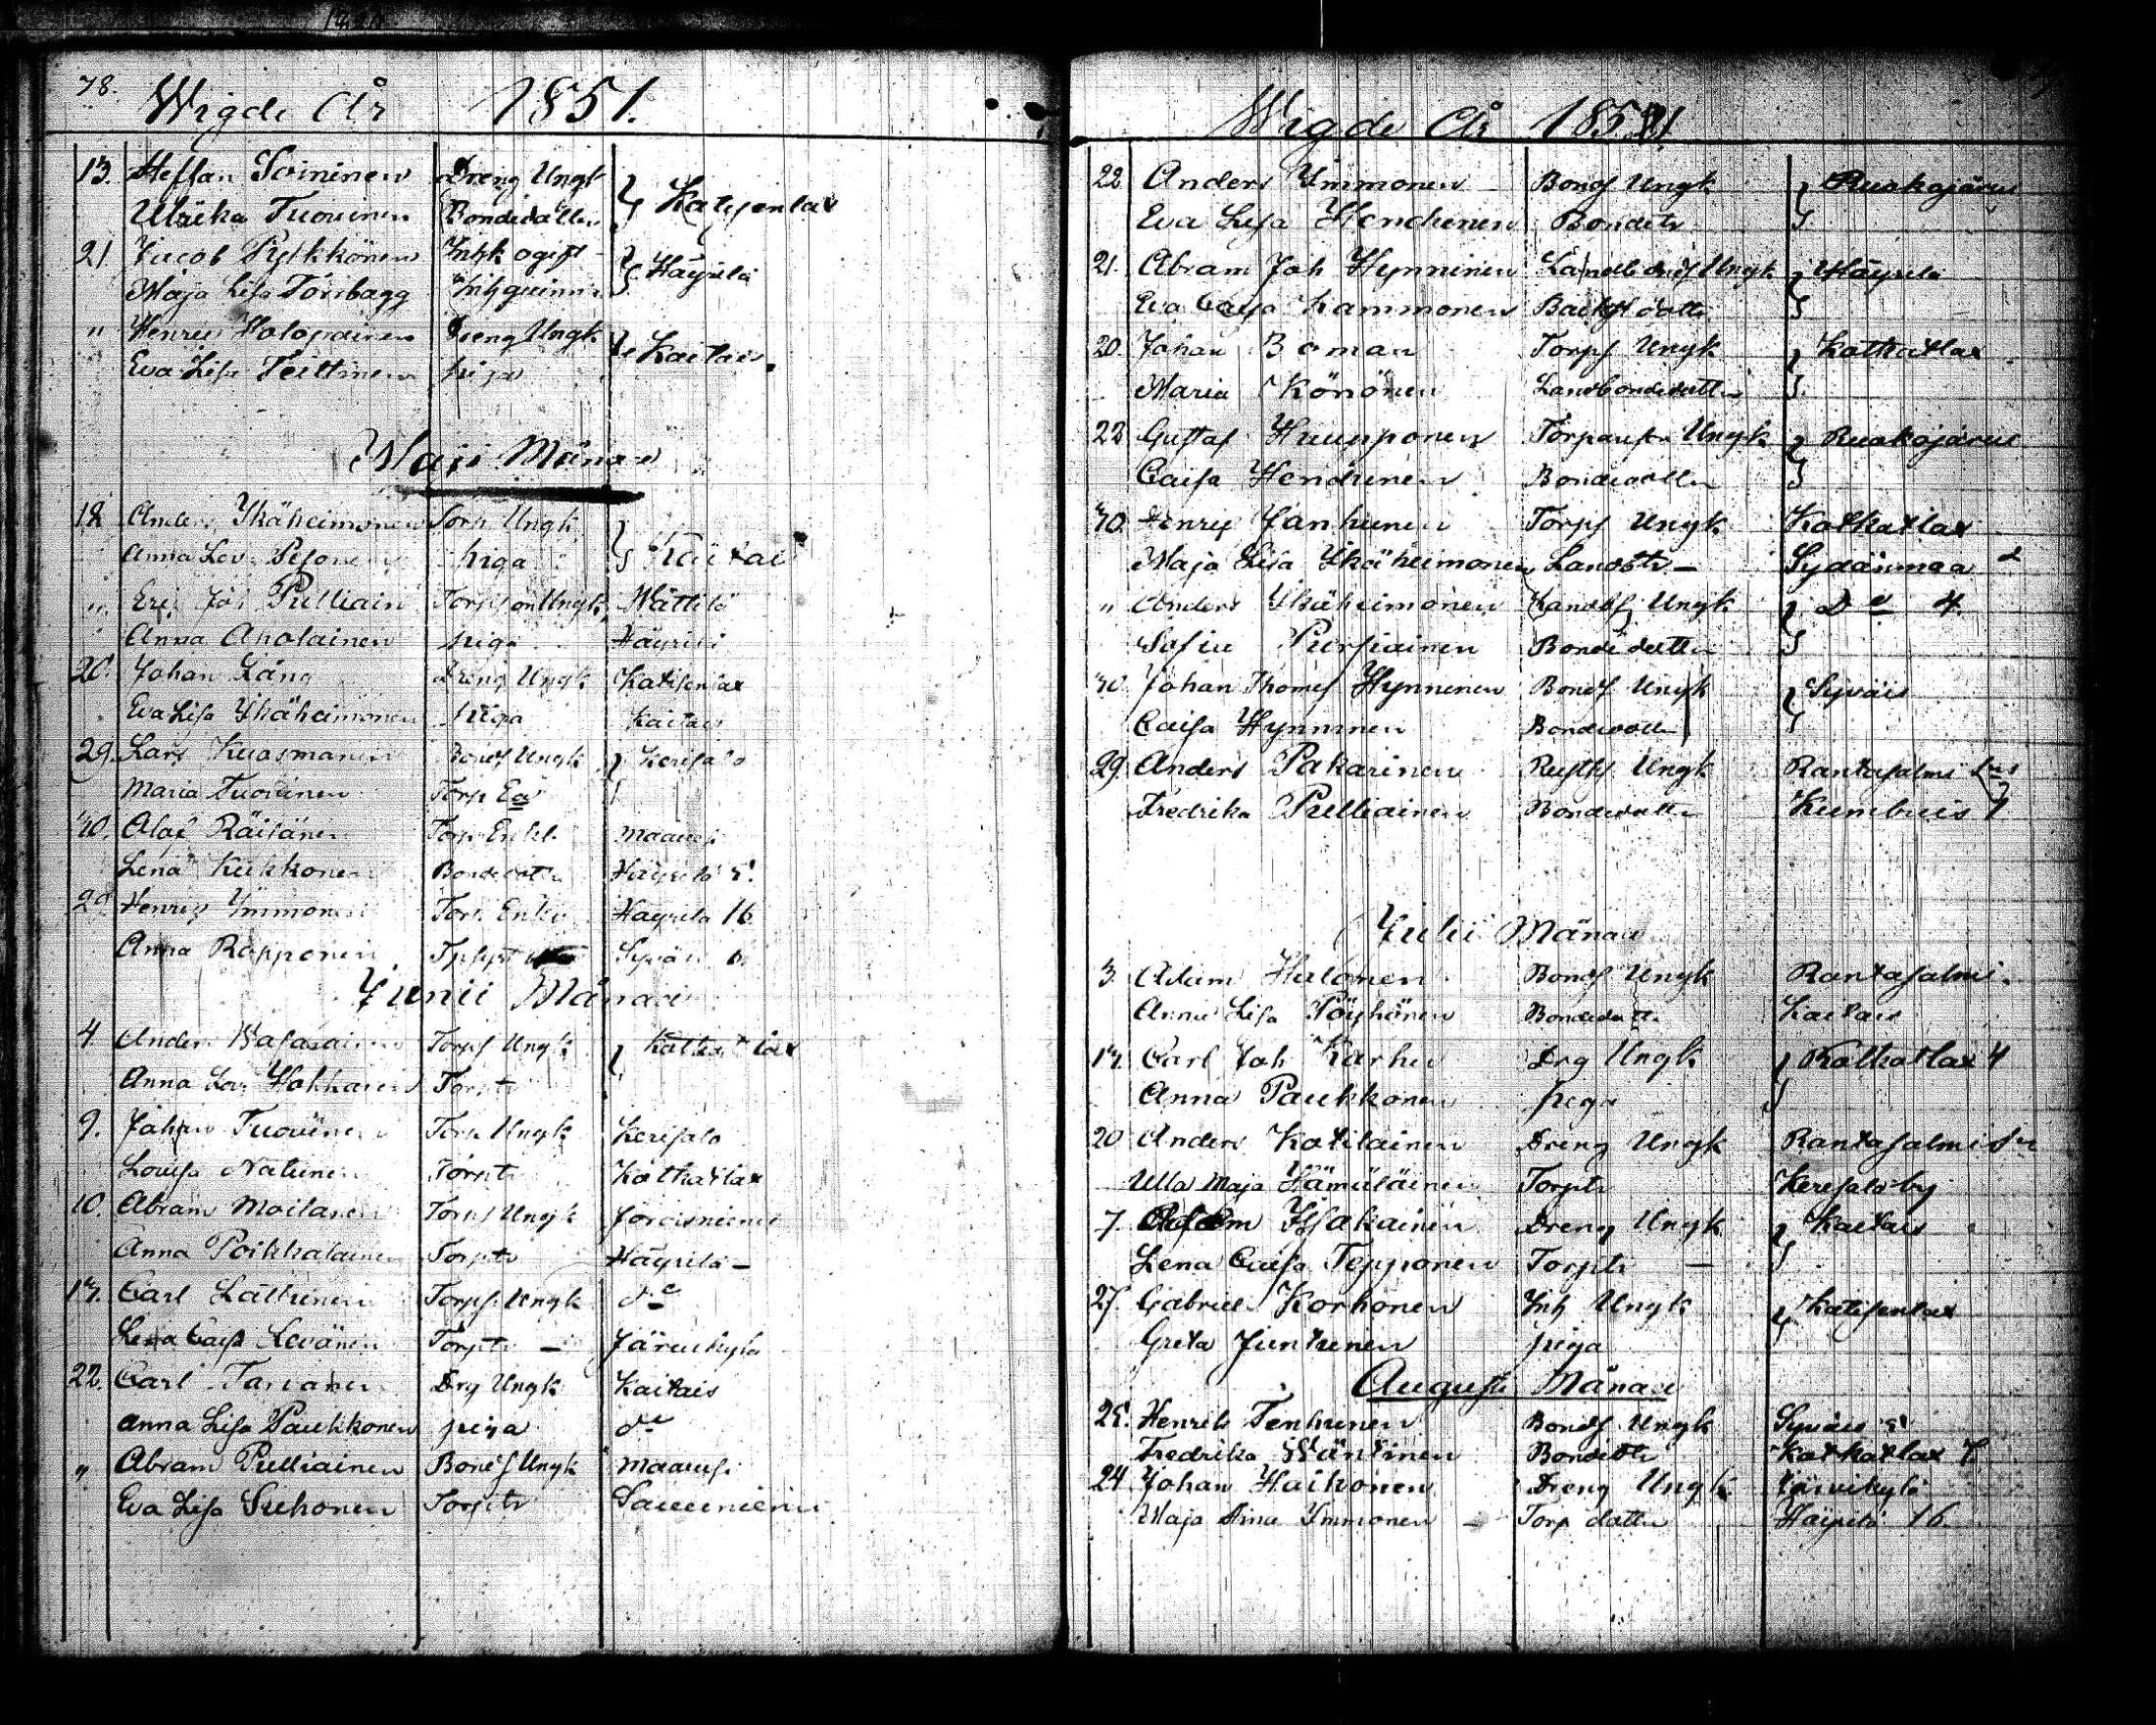 78.
Wigde År 1851.
13. Steffan Soininen Dreng Ungk } Katisenlax
Ulrika Tuovinen Bondedotter
21 Jacob Pykkönen Inhk ogift } Häyrilä
Maja Lisa Törsbagg Inhquinna
" Henric Holopainen Dreng Ungk } Kaitais
Eva Lisa Teittinen piga
Maji Månad
18 Anders Ikäheimonen Torp Ungk } Kaitais
Anna Lov. Pesonen piga
" Eric Joh Pulliain Torpson Ungk Mättilä
Anna Aholainen piga Häyrilä
20. Johan Lång Dreng Ungk Katisenlax
Eva Lisa Ikäheimonen piga Kaitais
29. Lars Kuosmanen Bonds Ungk } Kerisalo
Maria Tuovinen Torp
30. Olof Räisänen Torp Enkl. Maarusi
Lena Kukkonen Bondedotter Häyrilä 5.
29 Henric Immonen Torp Enkl Häyrilä 16
Anna Ropponen Syväis 6.
Junii Månad
4. Anders Torps Ungk } Kathatlax
Anna Lov. Hokkanen Torptr
9. Johan Tuovinen Torp Ungk Kerisalo
Lovisa Natunen Torptr Kathatlax
10. Abram Moilanen Torps Ungk Joroisniemi
Anna Poikkalainen Torptr Häyrilä –
13. Carl Lättinen Torps Ungk do
Lena Caisa Levänen Torptr – Järvikylä
22. Carl Tarvanen Drg Ungk Kaitais
Anna Lisa Paukkonen piga do
" Abram Pulliainen Bonds Ungk Maarusi
Eva Lisa Suhonen Torptr Sauuniemi
Wigde År 1851
22 Anders Immonen Bonds Ungk } Ruokojärvi
Eva Lisa Hendunen Bondetr
21. Abram Joh Hynninen Landbonds Ungk } Häyrilä
Eva Caisa Kammonen Backst dotter
20. Johan Boman Torps Ungk } Kathatlax
Maria Könönen Landbondedotter
22 Gustaf Haupponen Torpares Ungk } Ruokojärvi
Caisa Hendunen Bondedotter
30. Henric Janhunen Torps Ungk Kathatlax
Maja Lisa Ikäheimonen Landbtr – Sydänmaa 2
" Anders Ikäheimonen Landbs Ungk } Do 4.
Sofia Purhiainen Bondedotter
30. Johan Thomas Hynninen Bonds Ungk } Syväis
Caisa Hynninen Bondedotter
29. Anders Pakarinen Rusths Ungk Rantasalmi
Fredrika Pulliainen Bondedotter Kumbuis 7
Julii Månad
3. Adam Halonen Bonds Ungk Rantasalmi.
Anna Lisa Pöyhönen Bondedotter Kaitais
13. Carl Joh Karhu Drg Ungk } Kathatlax 4
Anna Paukkonen piga
20 Anders Kotilainen Dreng Ungk Rantasalmi Sn
Ulla Maja Hämäläinen Torptr Kerisalo by
7. Adam Issakainen Dreng Ungk } Kaitais
Lena Caisa Tepponen Torptr –
27. Gabriel Korhonen Inh Ungk } Katisenlax
Greta Juntunen piga
Augusti Månad
25. Henrik Tenhunen Bonds Ungk Syväis 5
Fredrika Väntinen Bondetr Kathatlax 7.
24 Johan Haikonen Dreng Ungk Järvikylä
Maja Stina Immonen – Torp dotter Häyrilä 16